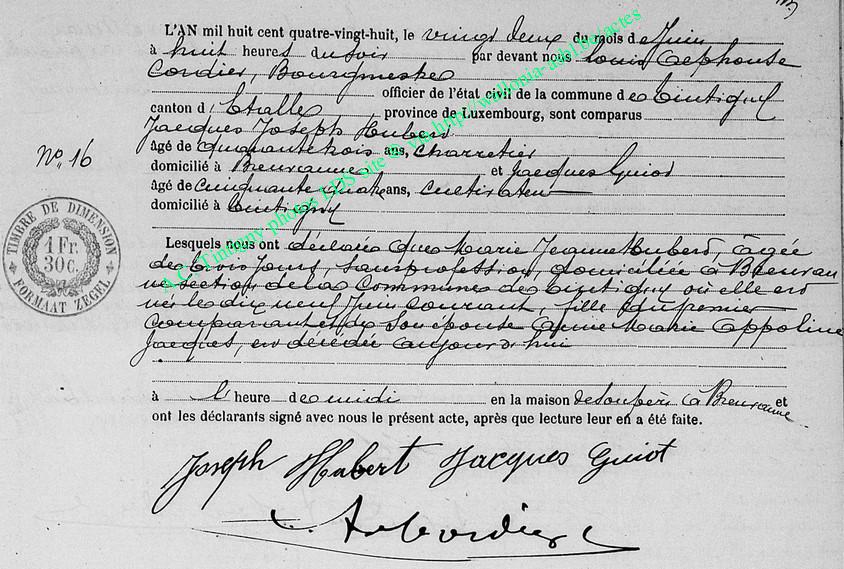 L'AN mil huit cent quatre-vingt-huit, le vingt deux du mois de Juin
à huit heures du soir par devant nous Louis Alphonse
Cordier, Bourgmestre
officier de l'état civil de la commune de Tintigny
canton d'Etalle province de Luxembourg, sont comparus
Jacques Joseph Hubert
âgé de quarante trois ans, charretier
domicilié à Breuvanne et Jacques Guiot
âgé de cinquante quatre ans, cultivateur
domicilié à Tintigny
No. 16
TIMBRE DE DIMENSION
1 Fr.
30 c.
FORMAAT ZEGEL
Lesquels nous ont déclaré que Marie Jeanne Hubert, âgée
de trois jours, sans profession, domiciliée à Breuvan
ne section de la Commune de Tintigny où elle est
née le dix neuf Juin courant, fille du premier
comparant et de son épouse Anne Marie Appoline
Jacques, est décédée aujourd'hui
à l'heure de midi en la maison de son père à Breuvanne et
ont les déclarants signé avec nous le présent acte, après que lecture leur en a été faite.
Joseph Hubert Jacques Guiot
Cordier
A.C. Tintigny photos LDS site © via http://wallonia-asbl.be/actes